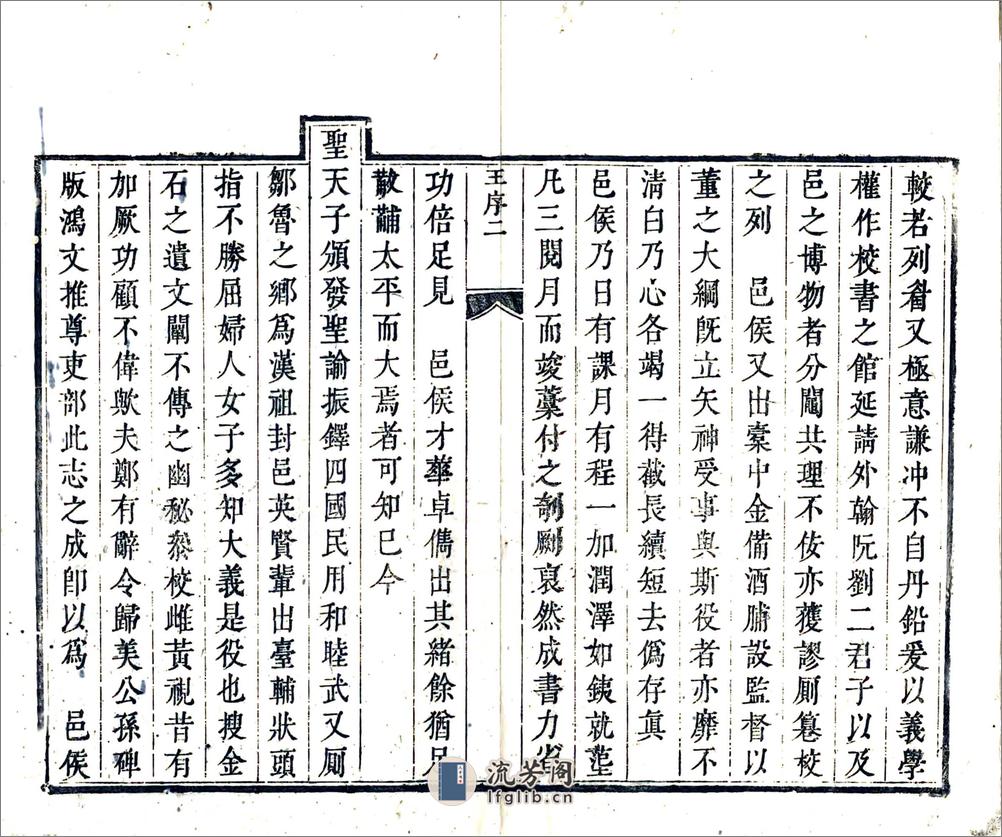 較若列眉又極意謙冲不自丹鉛爰以義學
權作校書之館延請外翰阮劉二君子以及
邑之博物者分閫共理不佞亦獲謬厠纂校
之列　邑侯又出橐中金備酒脯設監督以
董之大綱旣立矢神受事與斯役者亦靡不
淸白乃心各竭一得截長續短去僞存眞
邑侯乃日有課月有程一加潤澤如鐵就型
凡三閱月而竣藁付之剞劂裒然成書力省
王序二
功倍足見　邑侯才華卓儁出其緒餘猶足
黻黼太平而大焉者可知巳今
聖天子頒發聖諭振鐸四國民用和睦武又厠
鄒魯之鄉爲漢祖封邑英賢輩出臺輔狀頭
指不勝屈婦人女子多知大義是役也搜金
石之遺文闡不傳之幽秘叅校雌黃視昔有
加厥功顧不偉歟夫鄭有辭令歸美公孫碑
版鴻文推尊吏部此志之成卽以爲　邑侯
流芳阁
lfglib.cn